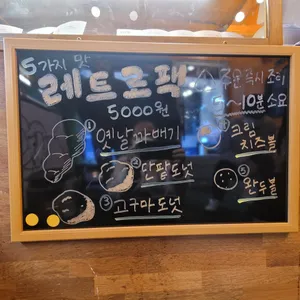 5가지 맛
레트로팩
5000원
주문 즉시 조리
5~10분 소요
① 옛날꽈배기
② 크림치즈볼
④ 단팥도넛
③ 고구마도넛
⑤ 완두볼